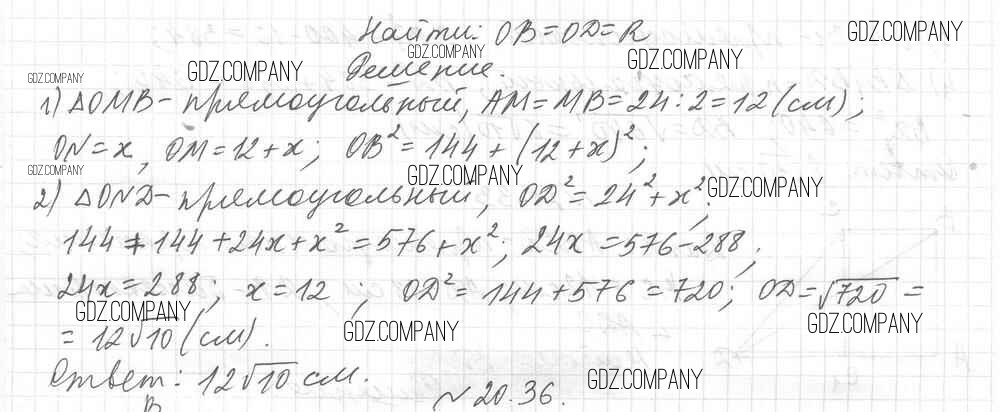 Найти: OB = OD = R
Решение.
1) △OMB – прямоугольный, AM = MB = 24 : 2 = 12 (см);
ON = x, OM = 12 + x; OB² = 144 + (12 + x)²;
2) △OND – прямоугольный, OD² = 24² + x²;
144 + 144 + 24x + x² = 576 + x²; 24x = 576 – 288,
24x = 288; x = 12; OD² = 144 + 576 = 720; OD = √720 =
= 12√10 (см).
Ответ: 12√10 см.
B
№ 20.36.
GDZ.COMPANY
GDZ.COMPANY
GDZ.COMPANY
GDZ.COMPANY
GDZ.COMPANY
GDZ.COMPANY
GDZ.COMPANY
GDZ.COMPANY
GDZ.COMPANY
GDZ.COMPANY
GDZ.COMPANY
GDZ.COMPANY